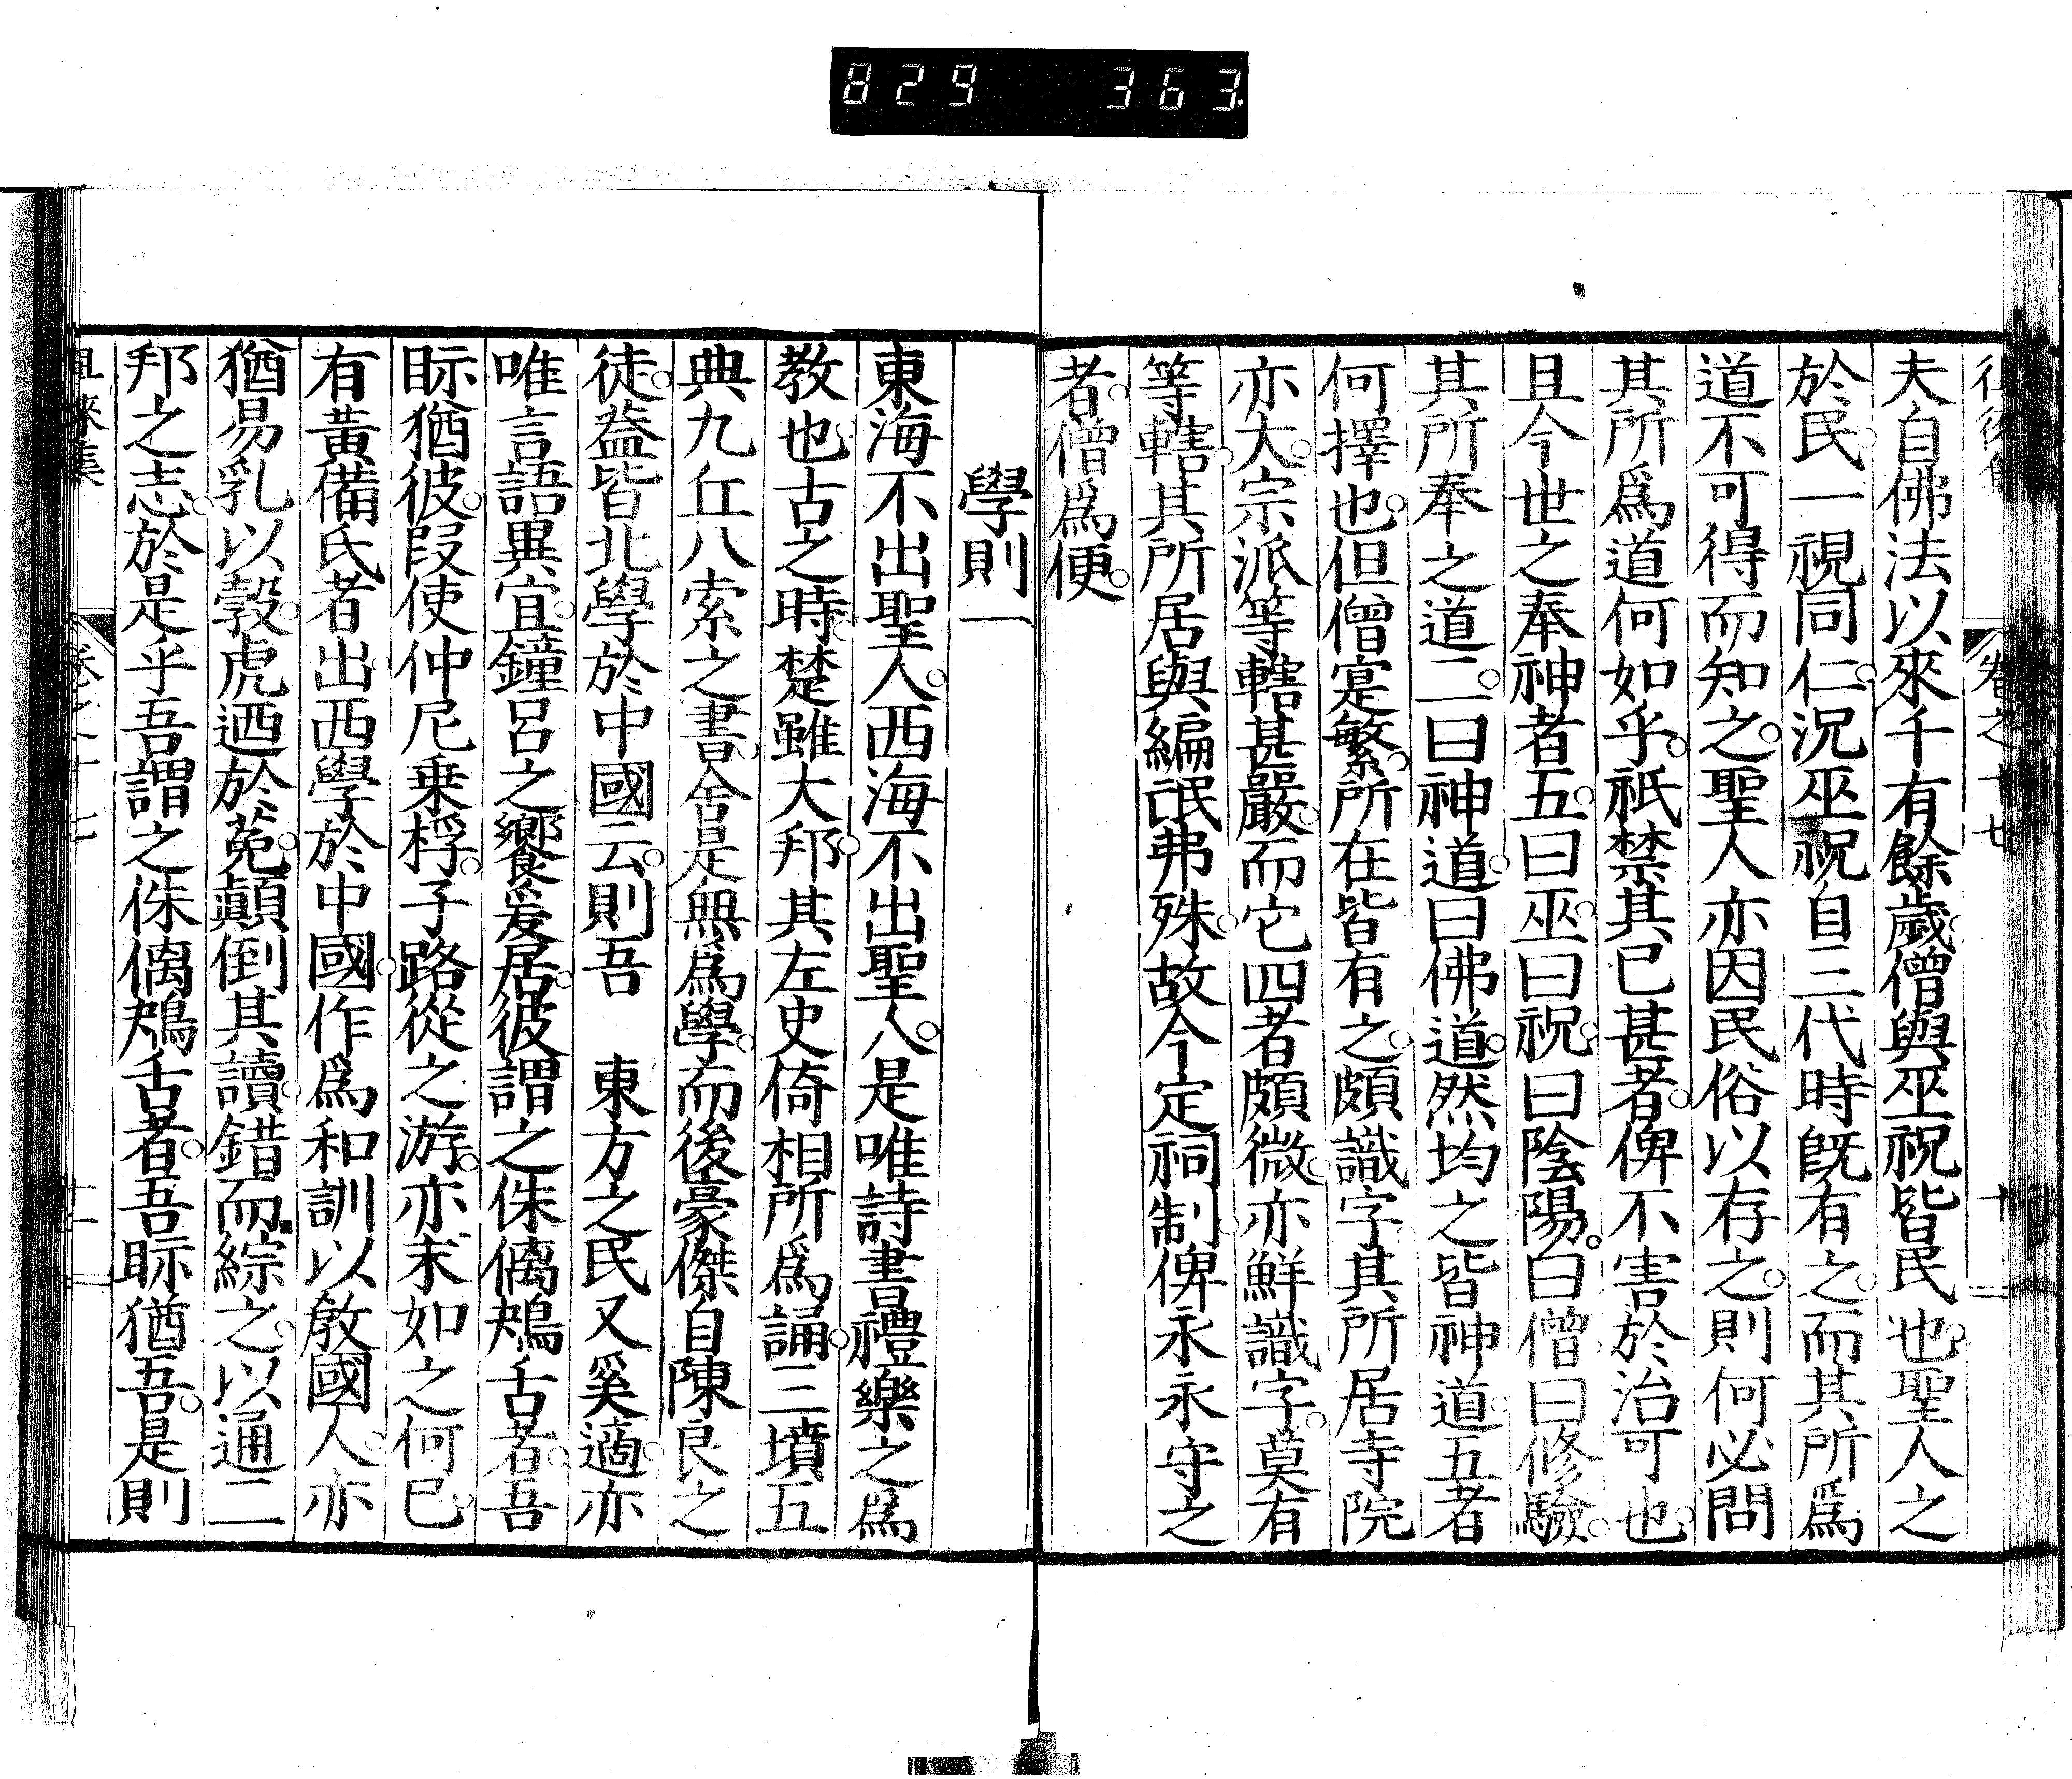 829 363
夫自佛法以來千有餘歲。僧與巫祝皆民也。聖人之
於民。一視同仁。況巫祝自三代時既有之。而其所爲
道不可得而知之。聖人亦因民俗以存之。則何必問
其所爲道何如乎。祇禁其已甚者。俾不害於治可也。
且今世之奉神者五。曰巫。曰祝。曰陰陽。曰僧。曰修驗。
其所奉之道二。曰神道。曰佛道。然均之皆神道。五者
何擇也。但僧寔繁。所在皆有之。頗識字。其所居寺院
亦大。宗派等轄甚嚴。而它四者頗微。亦鮮識字。莫有
等轄。其所居與編氓弗殊。故今定祠制。俾永永守之
者。僧爲便。
學則一
東海不出聖人。西海不出聖人。是唯詩書禮樂之爲
教也。古之時。楚雖大邦。其左史倚相所爲誦。三墳五
典九丘八索之書。舍是無爲學。而後豪傑自陳良之
徒。蓋皆北學於中國云。則吾　東方之民又奚適。亦
唯言語異宜。鐘呂之饗爰居。彼謂之侏𠌯鴂舌者。吾
眎猶彼。叚使仲尼乗桴。子路從之游。亦末如之何已。
有黃備氏者出。西學於中國。作爲和訓以敎國人。亦
猶易乳以㝅。虎迺於菟。顛倒其讀。錯而綜之。以通二
邦之志。於是乎吾謂之侏𠌯鴂舌者。吾眎猶吾。是則